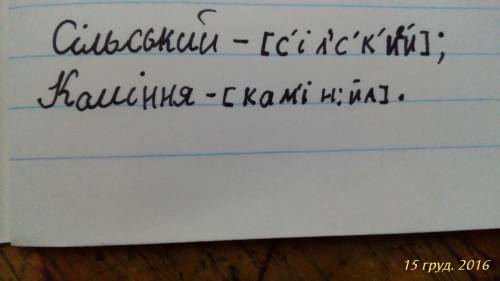 Сільський – [с'іл'с'к'ий];
Каміння – [кам'ін:йа].
15 груд. 2016